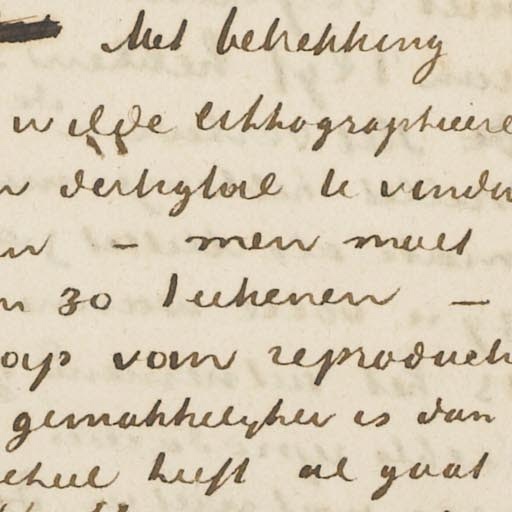 Met betrekking
wilde lithographieere
dertigtal te vinden
en – men moet
n 30 teekenen –
van reproduct
gemakkelyker is dan
heeft al gaat